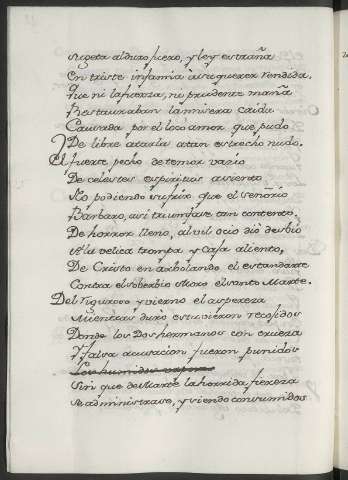 sugeta al duro fuero, y ley estraña
En triste infamia a su querer rendida.
Que ni la fuerza, ni prudente maña
Restauraban la misera caida
Causada por el loco amor que pudo
De libre atarla a tan estrecho nudo.
El fuerte pecho de temor vazio
De celestes espiritus asiento
No podiendo sufrir que el señorio
Barbaro, asi triunfase tan contento.
De horror lleno, al vil ocio dio desbio
A la velica trompa y Casa aliento,
De Cristo en arbolando el estandarte
Contra el soberbio Moro el santo Marte.
Del riguroso yvierno el aspereza
Mientras duro estuvieron recogidos
Donde los Dos hermanos con crueza
Y falsa acusacion fueron punidos
Los humidos vapore
Sin que de Marte la horrida fiereza
Se administrase, y viendo consumidos